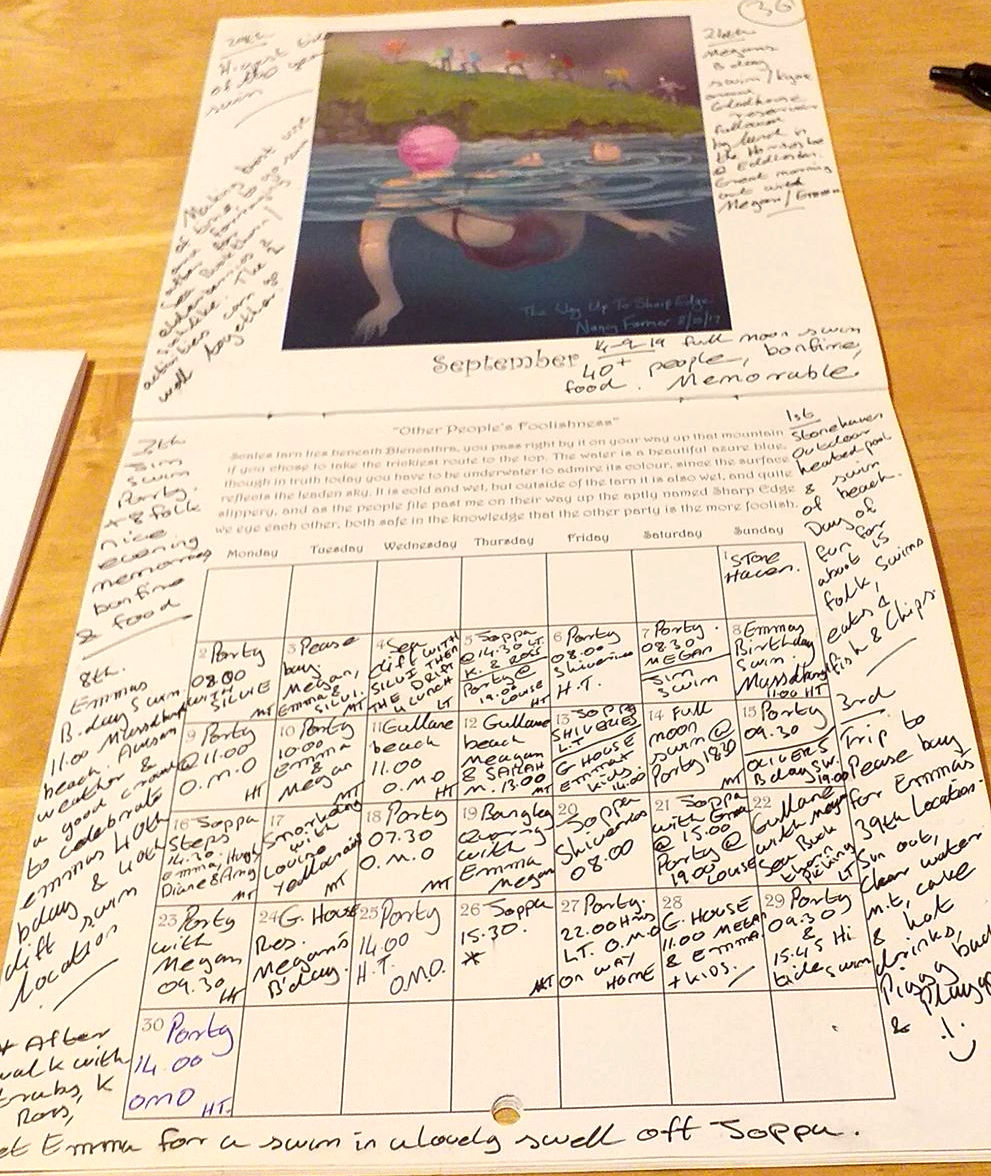 36
24th
Megans
B day
swim / hype
Gladhouse
reservoir
followed
by lunch in
the Horseshoe
@ Eddleston.
Great morning
out with
Megan / Emma
Highest tide
of the year
swim
Making best use
of time, to go
well together
The Way Up To Sharp Edge
Nancy Farmer 8/10/17
September
14-9-19 full moon swim
40+ people, bonfire,
food. Memorable.
"Other People's Foolishness"
Scales Tarn lies beneath Blencathra, you pass right by it on your way up that mountain
if you chose to take the trickiest route to the top. The water is a beautiful azure blue,
though in truth today you have to be underwater to admire its colour, since the surface
reflects the leaden sky. It is cold and wet, but outside of the tarn it is also wet, and quite
slippery, and as the people file past me on their way up the aptly named Sharp Edge
we eye each other, both safe in the knowledge that the other party is the more foolish.
1st
Stonehaven
outdoor
heated pool
& swim
of beach.
Day of
fun for
about 15
folk, swims
eats &
fish & chips.
7th
Jim
swim
Porty.
+8 folk
nice
evening
memories
bonfire
& food
Monday Tuesday Wednesday Thursday Friday Saturday Sunday
1 Stone
Haven.
2 Porty
08.00
WITH
SILVIE
MT
3 Pease
bay.
Megan,
Emma &
SILVI.
MT
4 Sea
drift WITH
SILVI THEN
THE DRIFT
LUNCH LT
5 Joppa
@ 14.30 LT.
K. & ROSS
Porty @
19.00 LOUISE
HT
6 Porty
08.00
Shiverines
H.T.
7 Porty.
08.30
MEGAN
JIM
SWIM
8 Emmas
Birthday
Swim
Musselburgh
11.00 HT
9 Porty
@ 11.00
O.M.O
HT
10 Porty
10.00
Emma
&
Megan
MT
11 Gullane
beach
11.00
O.M.O
HT
12 Gullane
beach
Meagan
& SARAH
M. 13.00
MT
13 Joppa
SHIVERES
L.T
G HOUSE
Emma +
kids. 14.00
14 Full
moon
swim @
Porty 1830
MT
15 Porty
09.30
OLIVERS
Bday SW.
19.00
16 Joppa
Steps
14.30
emma, Hugh
Diane & Amy
MT
17
Snorkeling
with
Louise
Yellowcraig
MT
18 Porty
07.30
O.M.O
MT
19 Bangley
Quarry
with
Emma
Megan
20
Joppa
Shiverines
08.00
21 Joppa
with Emma
@ 15.00
Porty @
19.00 Louise
22
Gullane
with Megan
Sea Buck
thorn
picking
LT
23 Porty
with
Megan
09.30
HT
24 G. House
Res.
Megan's
B'day.
25 Porty
14.00
H.T.
O.M.O.
26 Joppa
15.30.
*
MT
27 Porty.
22.00 Hrs
L.T. O.M.O
on WAY
HOME
28
G. HOUSE
11.00 MEGAN
& EMMA
+ KIDS.
29 Porty
09.30
&
15.45 Hi
tide swim
30 Porty
14.00
OMO
HT.
8th.
Emmas
B.day swim.
11.00 Musselburgh
beach. Awesome
weather &
a good crowd
to celebrate
emmas 40th
bday & 40th
diff swim
location
3rd
Trip to
Pease bay
for Emmas
39th Location.
Sun out,
clear water
m.t, cake
& hot
drinks,
Piggy bad
& Playing
!
* After
walk with
K
Ross,
Emma for a swim in a lovely swell off Joppa.